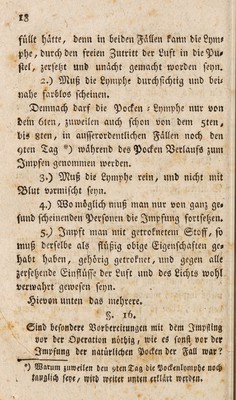 18
fülle hätte, denn in beiden Fällen kann die Lym⸗
phe, durch den freien Zutritt der Luft in die Pu⸗
stel, zersetzt und unächt gemacht worden seyn.
2.) Muß die Lymphe durchsichtig und bei⸗
nahe farblos scheinen.
Demnach darf die Pocken⸗Lymphe nur von
dem 6ten, zuweilen auch schon von dem 5ten,
bis 8ten, in ausserordentlichen Fällen noch den
9ten Tag *) während des Pocken Verlaufs zum
Impfen genommen werden.
3.) Muß die Lymphe rein, und nicht mit
Blut vermischt seyn.
4.) Wo möglich muß man nur von ganz ge⸗
sund scheinenden Personen die Impfung fortsetzen.
5.) Impft man mit getroknetem Stoff, so
muß derselbe als flüßig obige Eigenschaften ge⸗
habt haben, gehörig getroknet, und gegen alle
zersetzende Einflüsse der Luft und des Lichts wohl
verwahrt gewesen seyn.
Hievon unten das mehrere.
§. 16.
Sind besondere Vorbereitungen mit dem Impfling
vor der Operation nöthig, wie es sonst vor der
Impfung der natürlichen Pocken der Fall war?
*) Warum zuweilen den 9ten Tag die Pockenlymphe noch
tauglich seye, wird weiter unten erklärt werden.